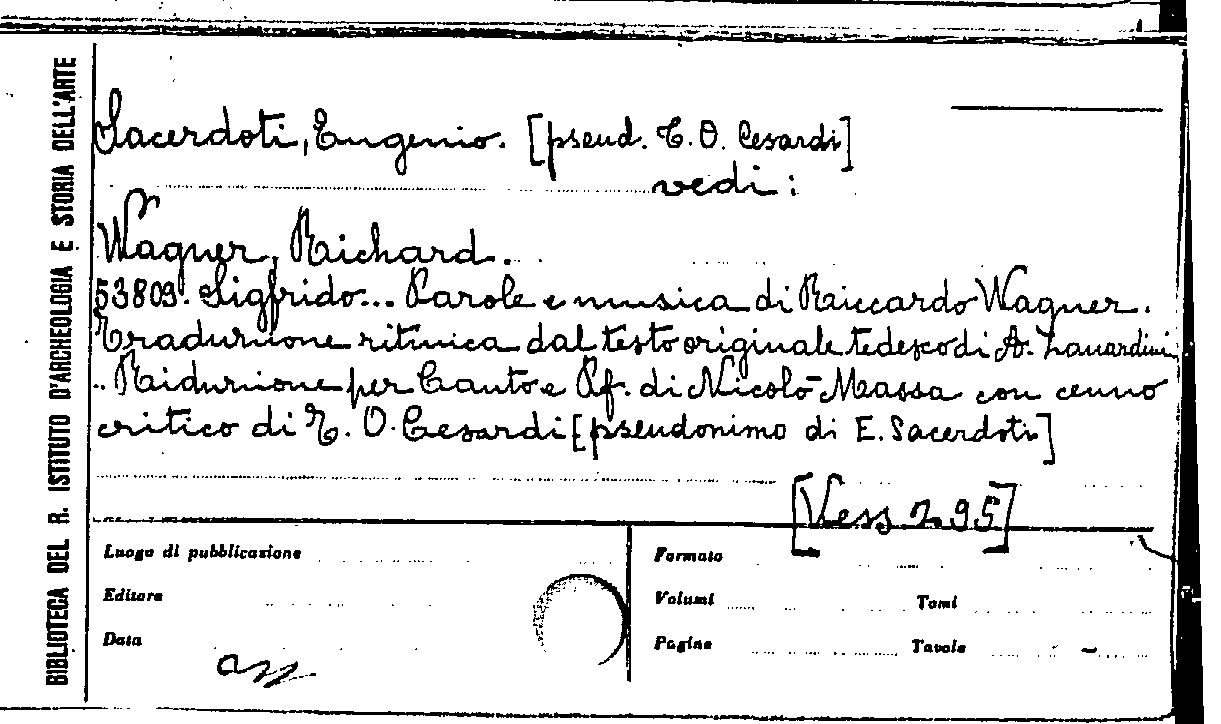 BIBLIOTECA DEL R. ISTITUTO D'ARCHEOLOGIA E STORIA DELL'ARTE
Sacerdoti, Eugenio. [pseud. T. O. Cesardi]
vedi:
Wagner, Richard.
53809. Sigfrido... Parole e musica di Riccardo Wagner.
Traduzione ritmica dal testo originale tedesco di A. Zanardini
.. Riduzione per Canto e Pf. di Nicolò Massa con cenno
critico di T. O. Cesardi [pseudonimo di E. Sacerdoti]
[Vess 295]
Luogo di pubblicazione
Editore
Data
Formato
Volumi Tomi
Pagine Tavole